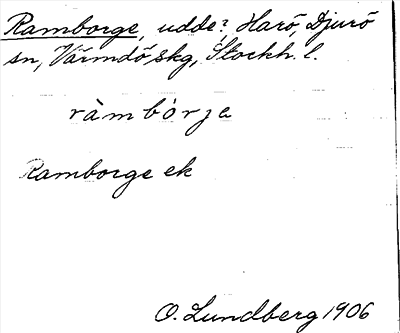 Ramborge, udde? Harö, Djurö
sn, Värmdö skg, Stockh. l.
ràmbórja
Ramborge ek
O. Lundberg 1906